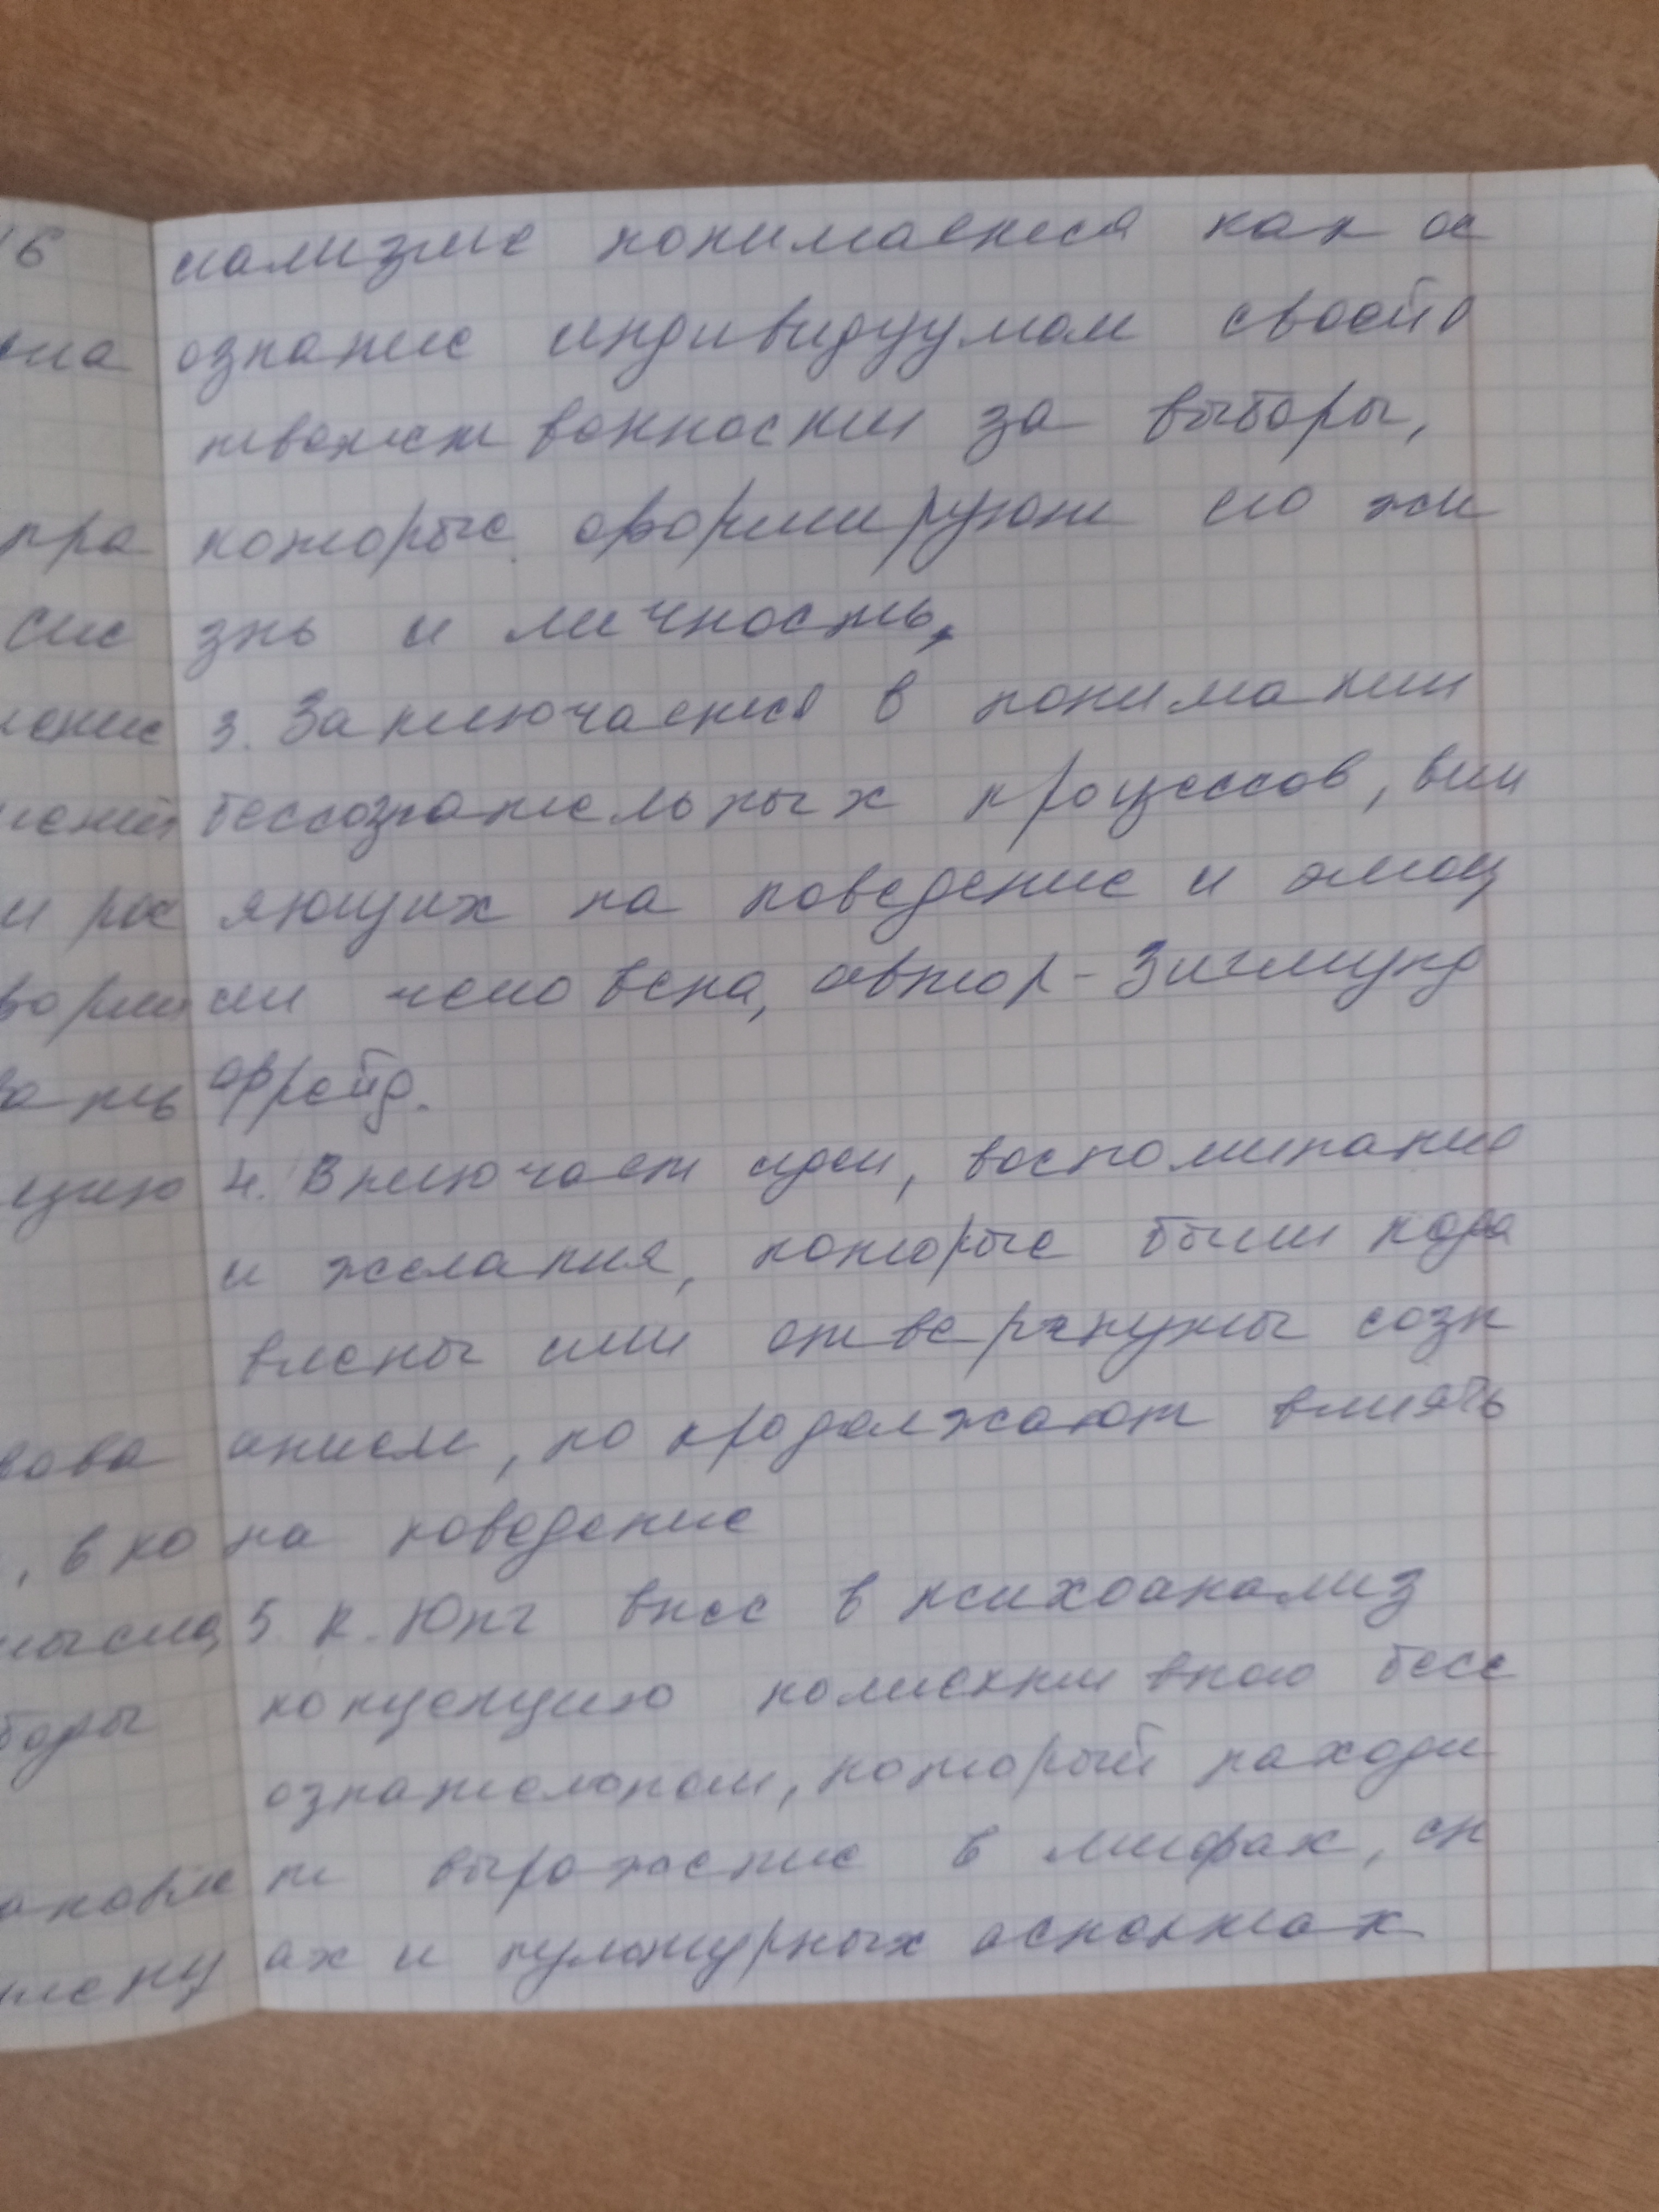 иализме понимается как ос
ознание индивидуумом своей о
тветственности за выборы,
которые формируют его жи
знь и личность.
3. Заключается в понимании
бессознательных процессов, вли
яющих на поведение и эмоц
ии человека, автор - Зигмунд
Фрейд.
4. Включает идеи, воспоминания
и желания, которые были пода
влены или отвергнуты созн
анием, но продолжают влиять
на поведение
5. К. Юнг внес в психоанализ
концепцию коллективного бесс
ознательном, который находи
т выражение в мифах, сн
ах и культурных аспектах